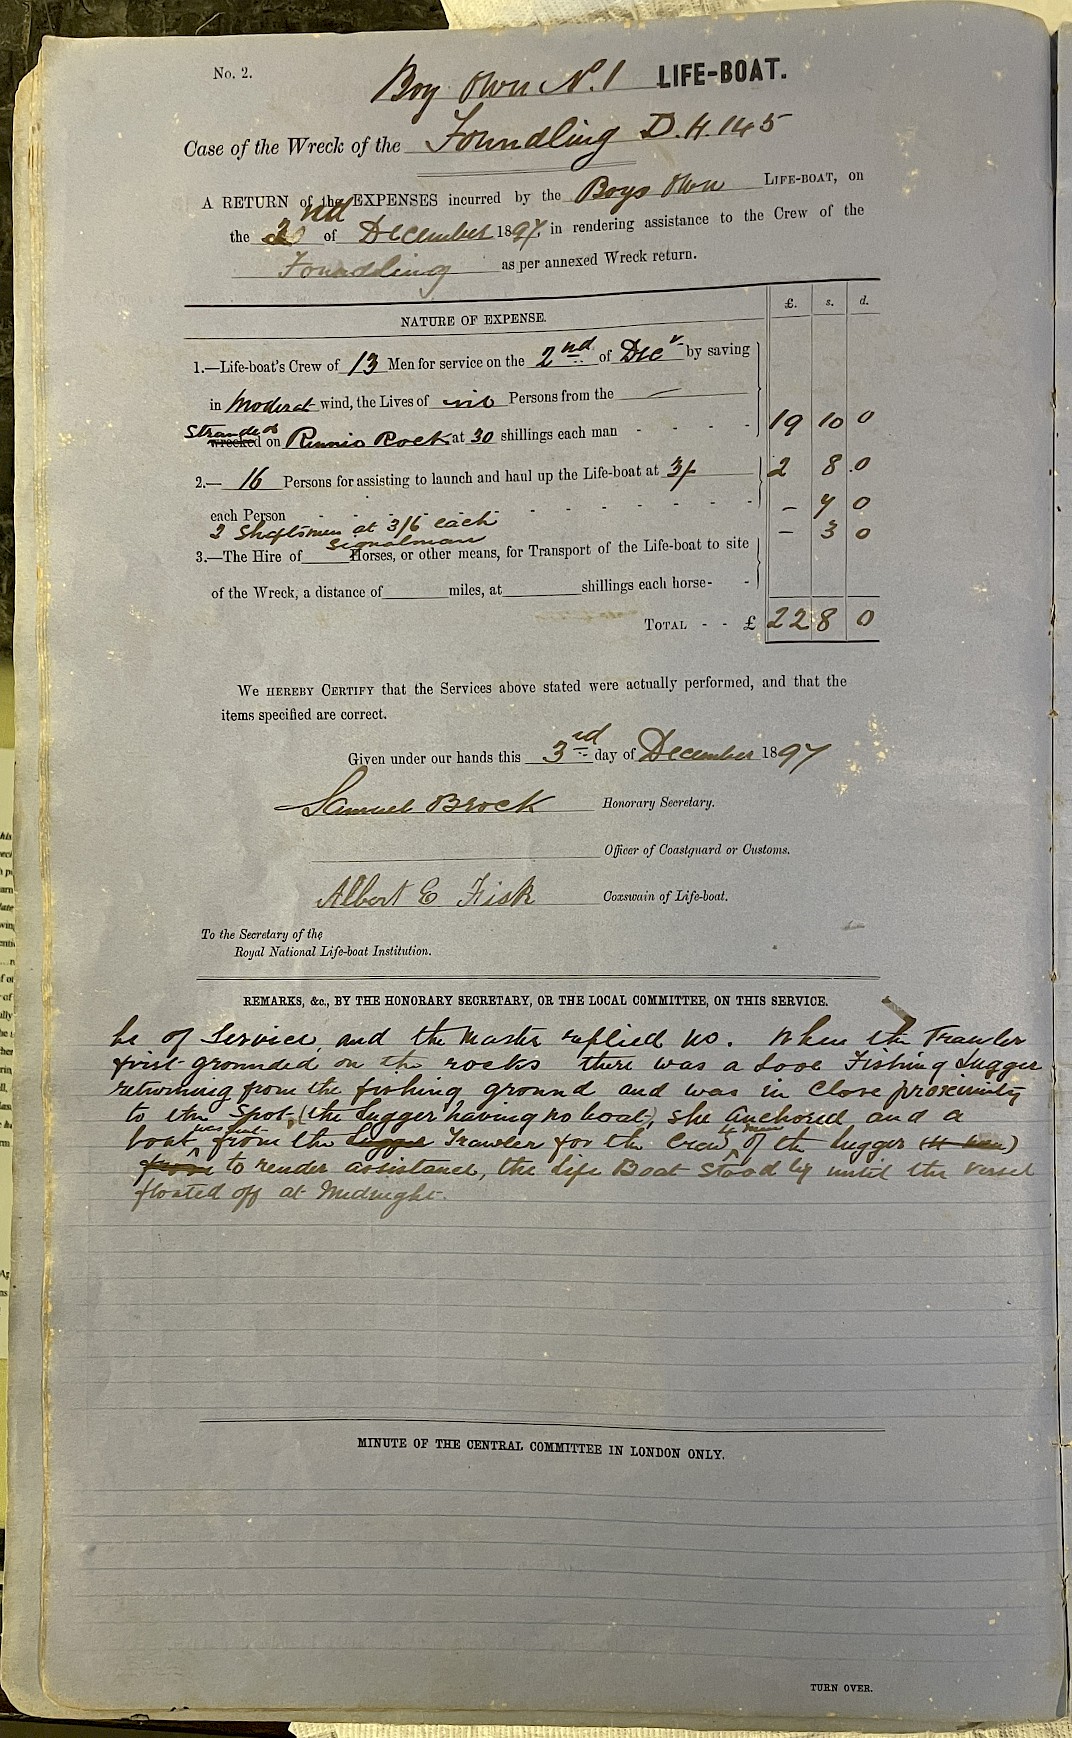 No. 2.
Boy Own No. 1 LIFE-BOAT.
Case of the Wreck of the Foundling D.H. 145
A RETURN of the EXPENSES incurred by the Boys Own LIFE-BOAT, on
the 2nd of December 1897, in rendering assistance to the Crew of the
Foundling as per annexed Wreck return.
NATURE OF EXPENSE. £. s. d.
1.—Life-boat's Crew of 13 Men for service on the 2nd of Decr by saving
in Moderat wind, the Lives of nil Persons from the —
Stranded
wrecked on Rennis Rock at 30 shillings each man - - - - 19 10 0
2.— 16 Persons for assisting to launch and haul up the Life-boat at 3/- 2 8 0
each Person - - - - - - - - - – 7 0
2 Shaftsmen at 3/6 each
Signalman – 3 0
3.—The Hire of Horses, or other means, for Transport of the Life-boat to site
of the Wreck, a distance of miles, at shillings each horse- -
TOTAL - - £ 22 8 0
We HEREBY CERTIFY that the Services above stated were actually performed, and that the
items specified are correct.
Given under our hands this 3rd day of December 1897
Samuel Brock Honorary Secretary.
Officer of Coastguard or Customs.
Albert E Fisk Coxswain of Life-boat.
To the Secretary of the
Royal National Life-boat Institution.
REMARKS, &c., BY THE HONORARY SECRETARY, OR THE LOCAL COMMITTEE, ON THIS SERVICE.
be of Service, and the Master replied No. When the Trawler
first grounded on the rocks there was a Looe Fishing Lugger
returning from the fishing ground and was in Close proximity
to the Spot, (the Lugger having no boat), she anchored and a
was sent 4 men
boat from the Lugger Trawler for the Crew of the Lugger (4 men)
to render assistance, the Life Boat stood by until the vessel
floated off at Midnight.
MINUTE OF THE CENTRAL COMMITTEE IN LONDON ONLY.
TURN OVER.